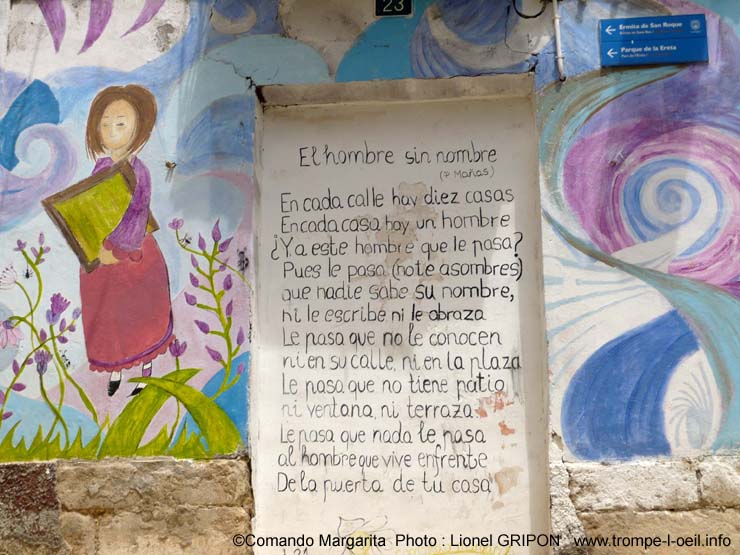 23
Ermita de San Roque
Parque de la Ereta
El hombre sin nombre
(P Mañas)
En cada calle hay diez casas
En cada casa hay un hombre
¿Y a este hombre que le pasa?
Pues le pasa (no te asombres)
que nadie sabe su nombre,
ni le escribe ni le abraza
Le pasa que no le conocen
ni en su calle, ni en la plaza
Le pasa que no tiene patio
ni ventana, ni terraza
Le pasa que nada le pasa
al hombre que vive enfrente
De la puerta de tu casa
©Comando Margarita Photo : Lionel GRIPON www.trompe-l-oeil.info